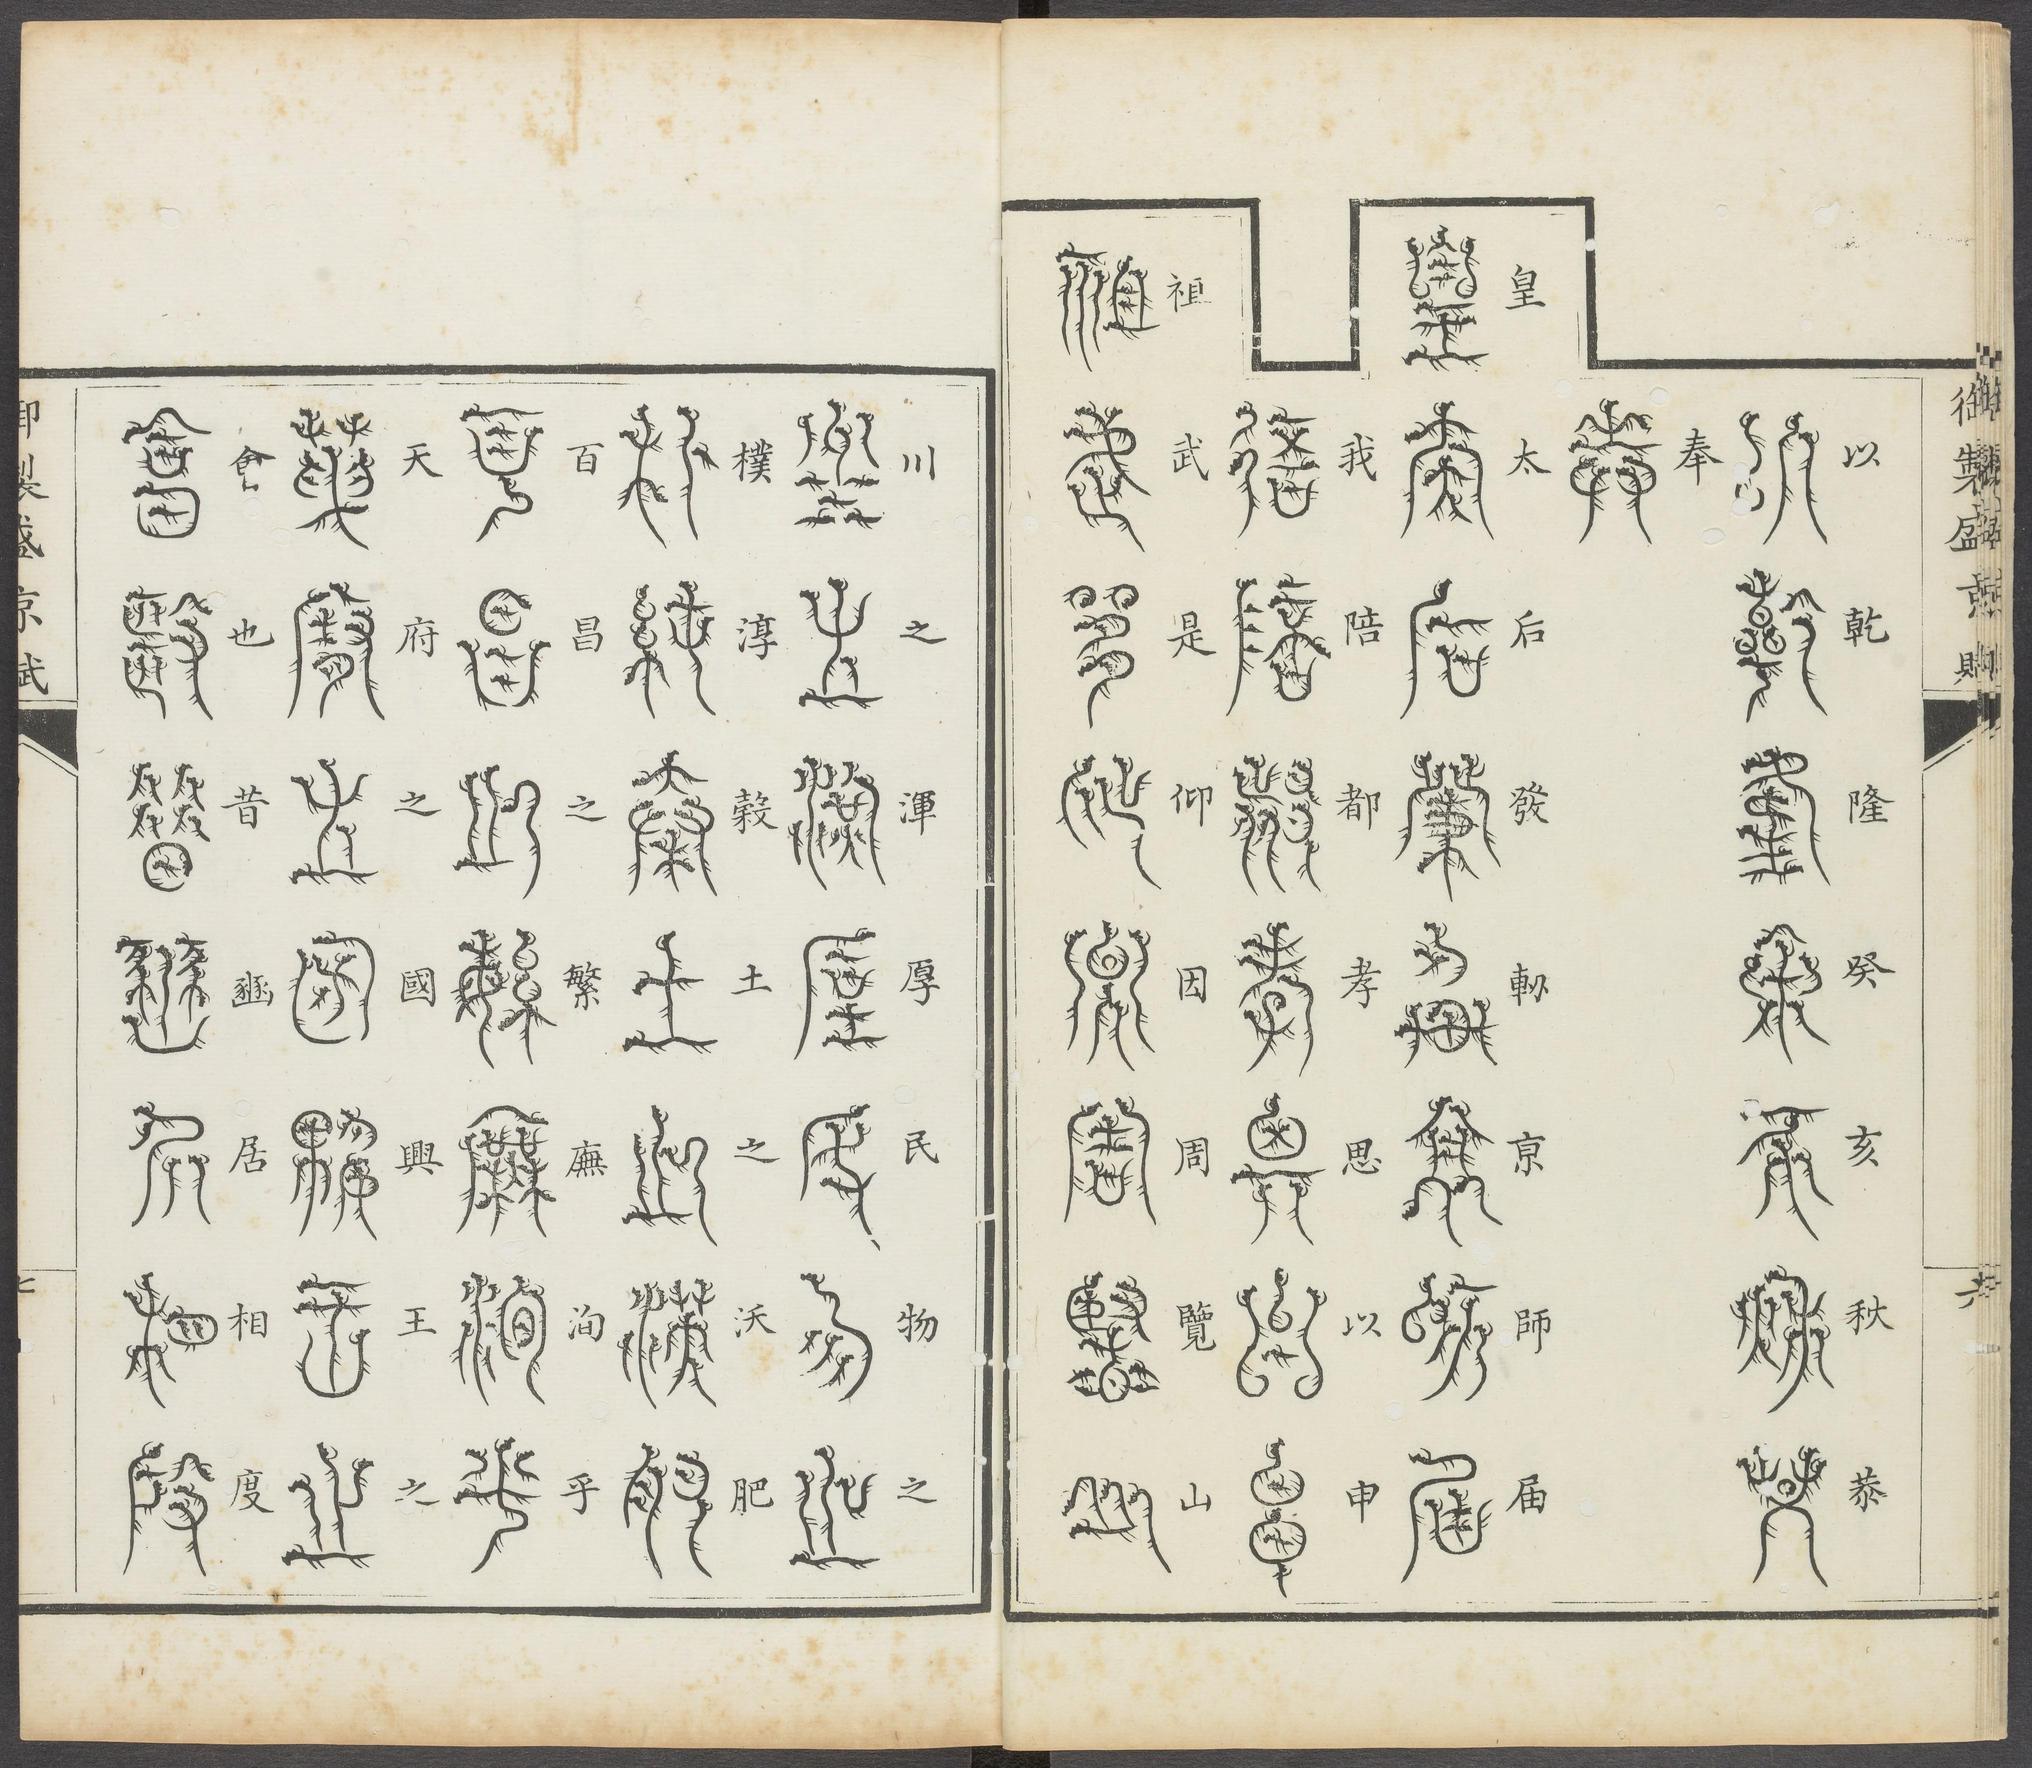 以乾隆癸亥秋恭
奉
皇太后發軔京師届
我陪都孝思以申
祖武是仰因周覽山
川之渾厚民物之
樸淳穀土之沃肥
百昌之繁廡洵乎
天府之國興王之
會也昔豳居相度
御製盛京賦
六